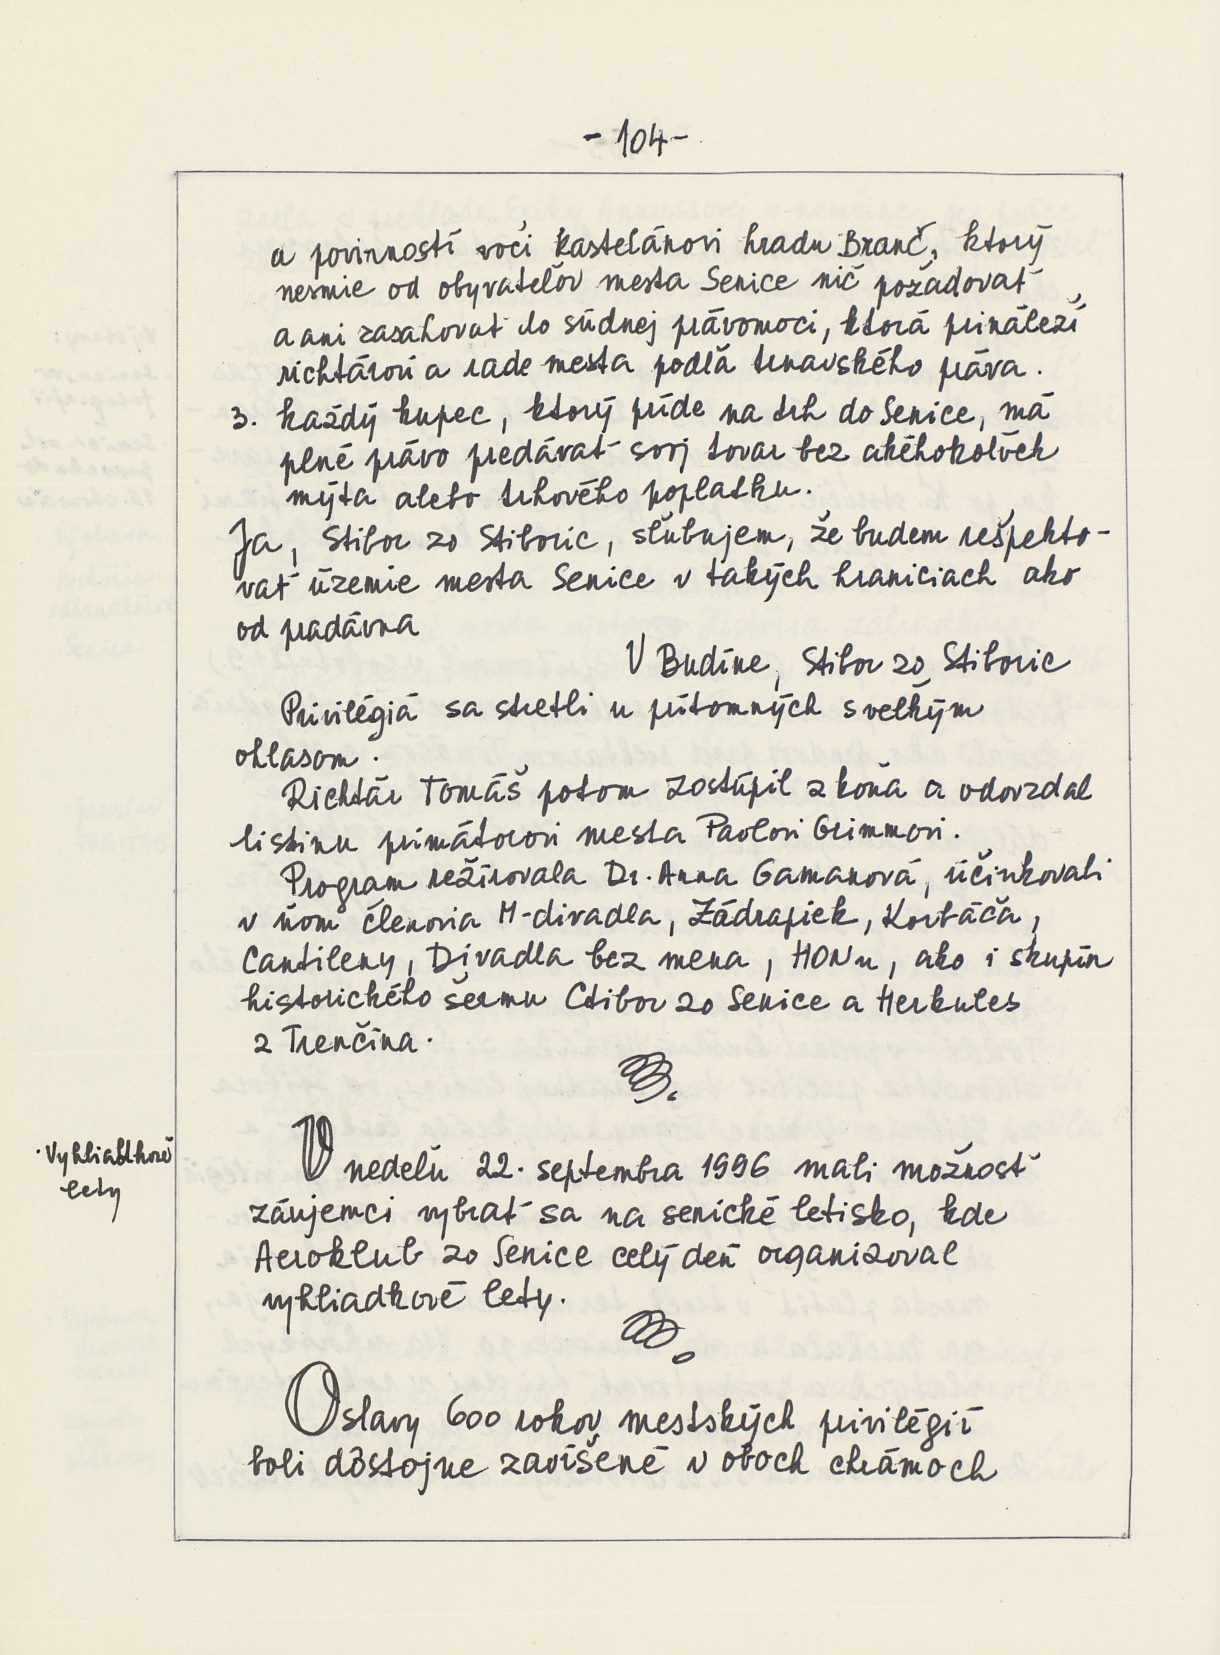 - 104 -
a povinností voči kastelánovi hradu Branč, ktorý
nesmie od obyvateľov mesta Senice nič požadovať
a ani zasahovať do súdnej právomoci, ktorá prináleží
richtárovi a rade mesta podľa trnavského práva.
3. každý kupec, ktorý príde na trh do Senice, má
plné právo predávať svoj tovar bez akéhokoľvek
mýta alebo trhového poplatku.
Ja, Stibor zo Stiboric, sľubujem, že budem rešpekto-
vať územie mesta Senice v takých hraniciach ako
od pradávna
V Budíne, Stibor zo Stiboric
Privilégiá sa stretli u prítomných s veľkým
ohlasom.
Richtár Tomáš potom zostúpil z koňa a odovzdal
listinu primátorovi mesta Pavlovi Grimmovi.
Program režírovala Dr. Anna Gamanová, účinkovali
v ňom členovia M-divadla, Zádrapiek, Korbáča,
Cantileny, Divadla bez mena, HONu, ako i skupín
historického šermu Ctibor zo Senice a Herkules
z Trenčína.
Vyhliadkové
lety
V nedeľu 22. septembra 1996 mali možnosť
záujemci vybrať sa na senické letisko, kde
Aeroklub zo Senice celý deň organizoval
vyhliadkové lety.
Oslavy 600 rokov mestských privilégií
boli dôstojne zavŕšené v oboch chrámoch